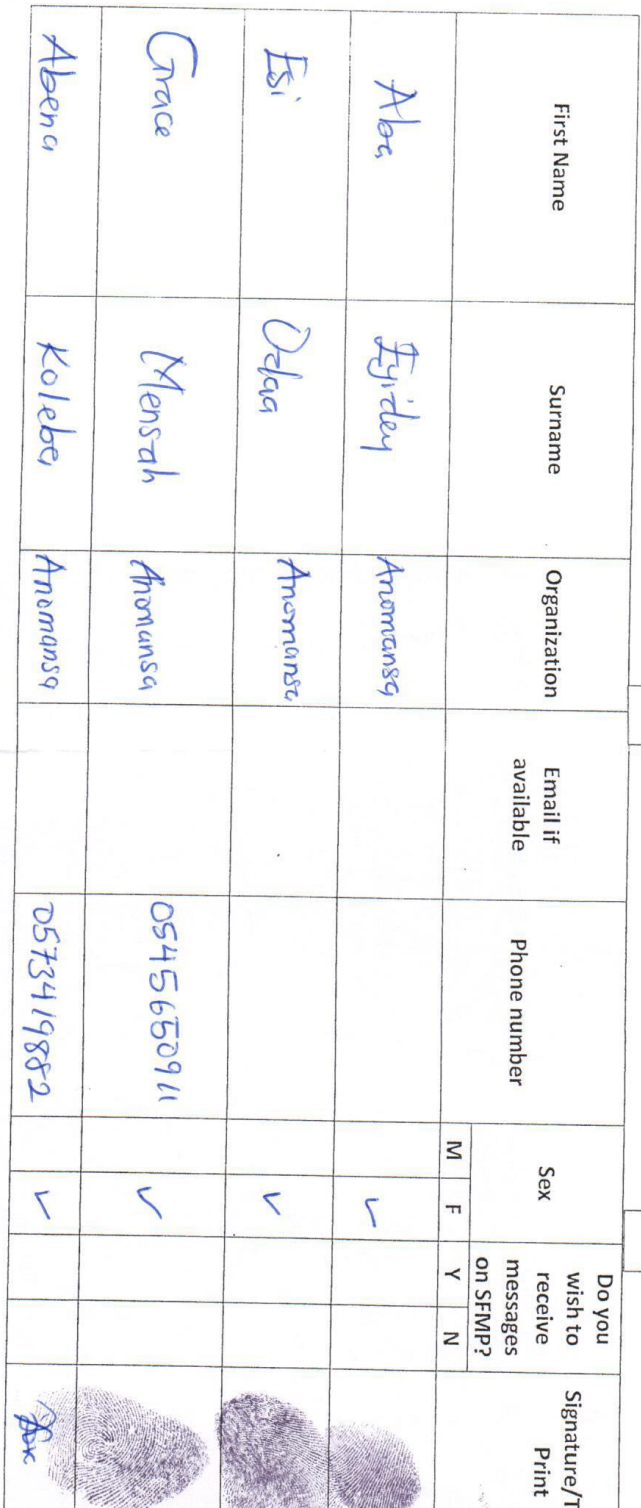 First Name Surname Organization Email if available Phone number Sex Do you wish to receive messages on SFMP? Signature/T Print
M F Y N
Aba Eyidey Anomansa ✓
Esi Odaa Anomansa ✓
Grace Mensah Anomansa 0545650911 ✓
Abena Koleba Anomansa 0573419882 ✓